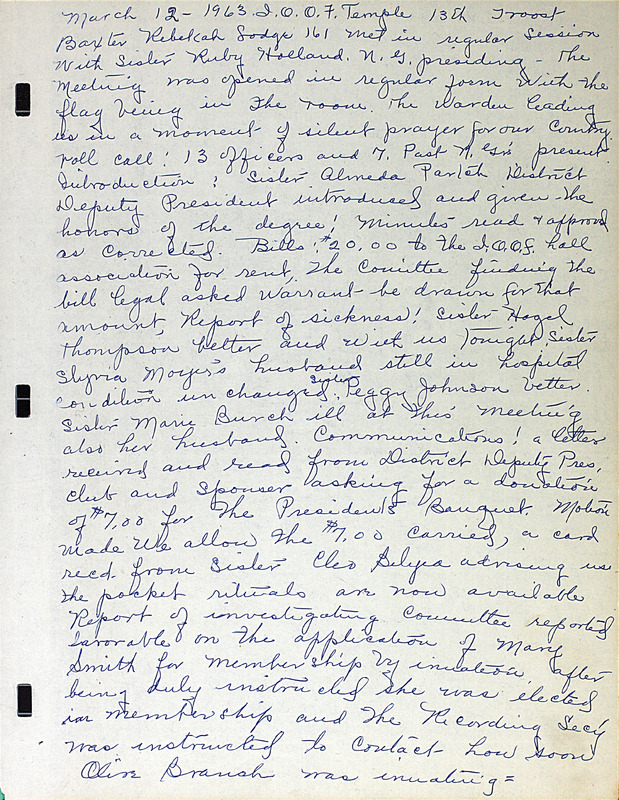 March 12 - 1963. I.O.O.F. Temple 13th Troost
Baxter Rebekah Lodge 161 met in regular Session
With Sister Ruby Holland. N.G. presiding - The
Meeting was opened in regular form with the
flag being in The room. The Warden leading
us in a moment of silent prayer for our Country.
roll call! 13 officers and 7. Past N.G's present.
Introduction! Sister Almeda Parish District
Deputy President introduced and given the
honors of the degree! Minutes read & approvd
as corrected. Bills! $20.00 to the I.O.O.F. hall
association for rent, The Comittee finding the
bill legal asked Warrant be drawn for that
amount, Report of sickness! Sister Hazel
Thompson better and with us Tonight Sister
Slyvia Moyer's husband still in hospital
condition unchanged, Sister Peggy Johnson better.
Sister Marie Burch ill at this meeting
also her husband Communications! a letter
recived and read from District Deputy Pres,
club and Sponser asking for a donation
of $7,00 for The President's Banquet Motion
made We allow The $7,00 carried, a card
recd. from Sister Cleo Belyea advising us
the pocket rituals are now available
Report of investigating Committee reported
favorable on the application of Mary
Smith for membership by iniation, after
being duly instructed she was elected
in membership and the Recording Secy
was instructed to contact how soon
Olive Branch was iniating=